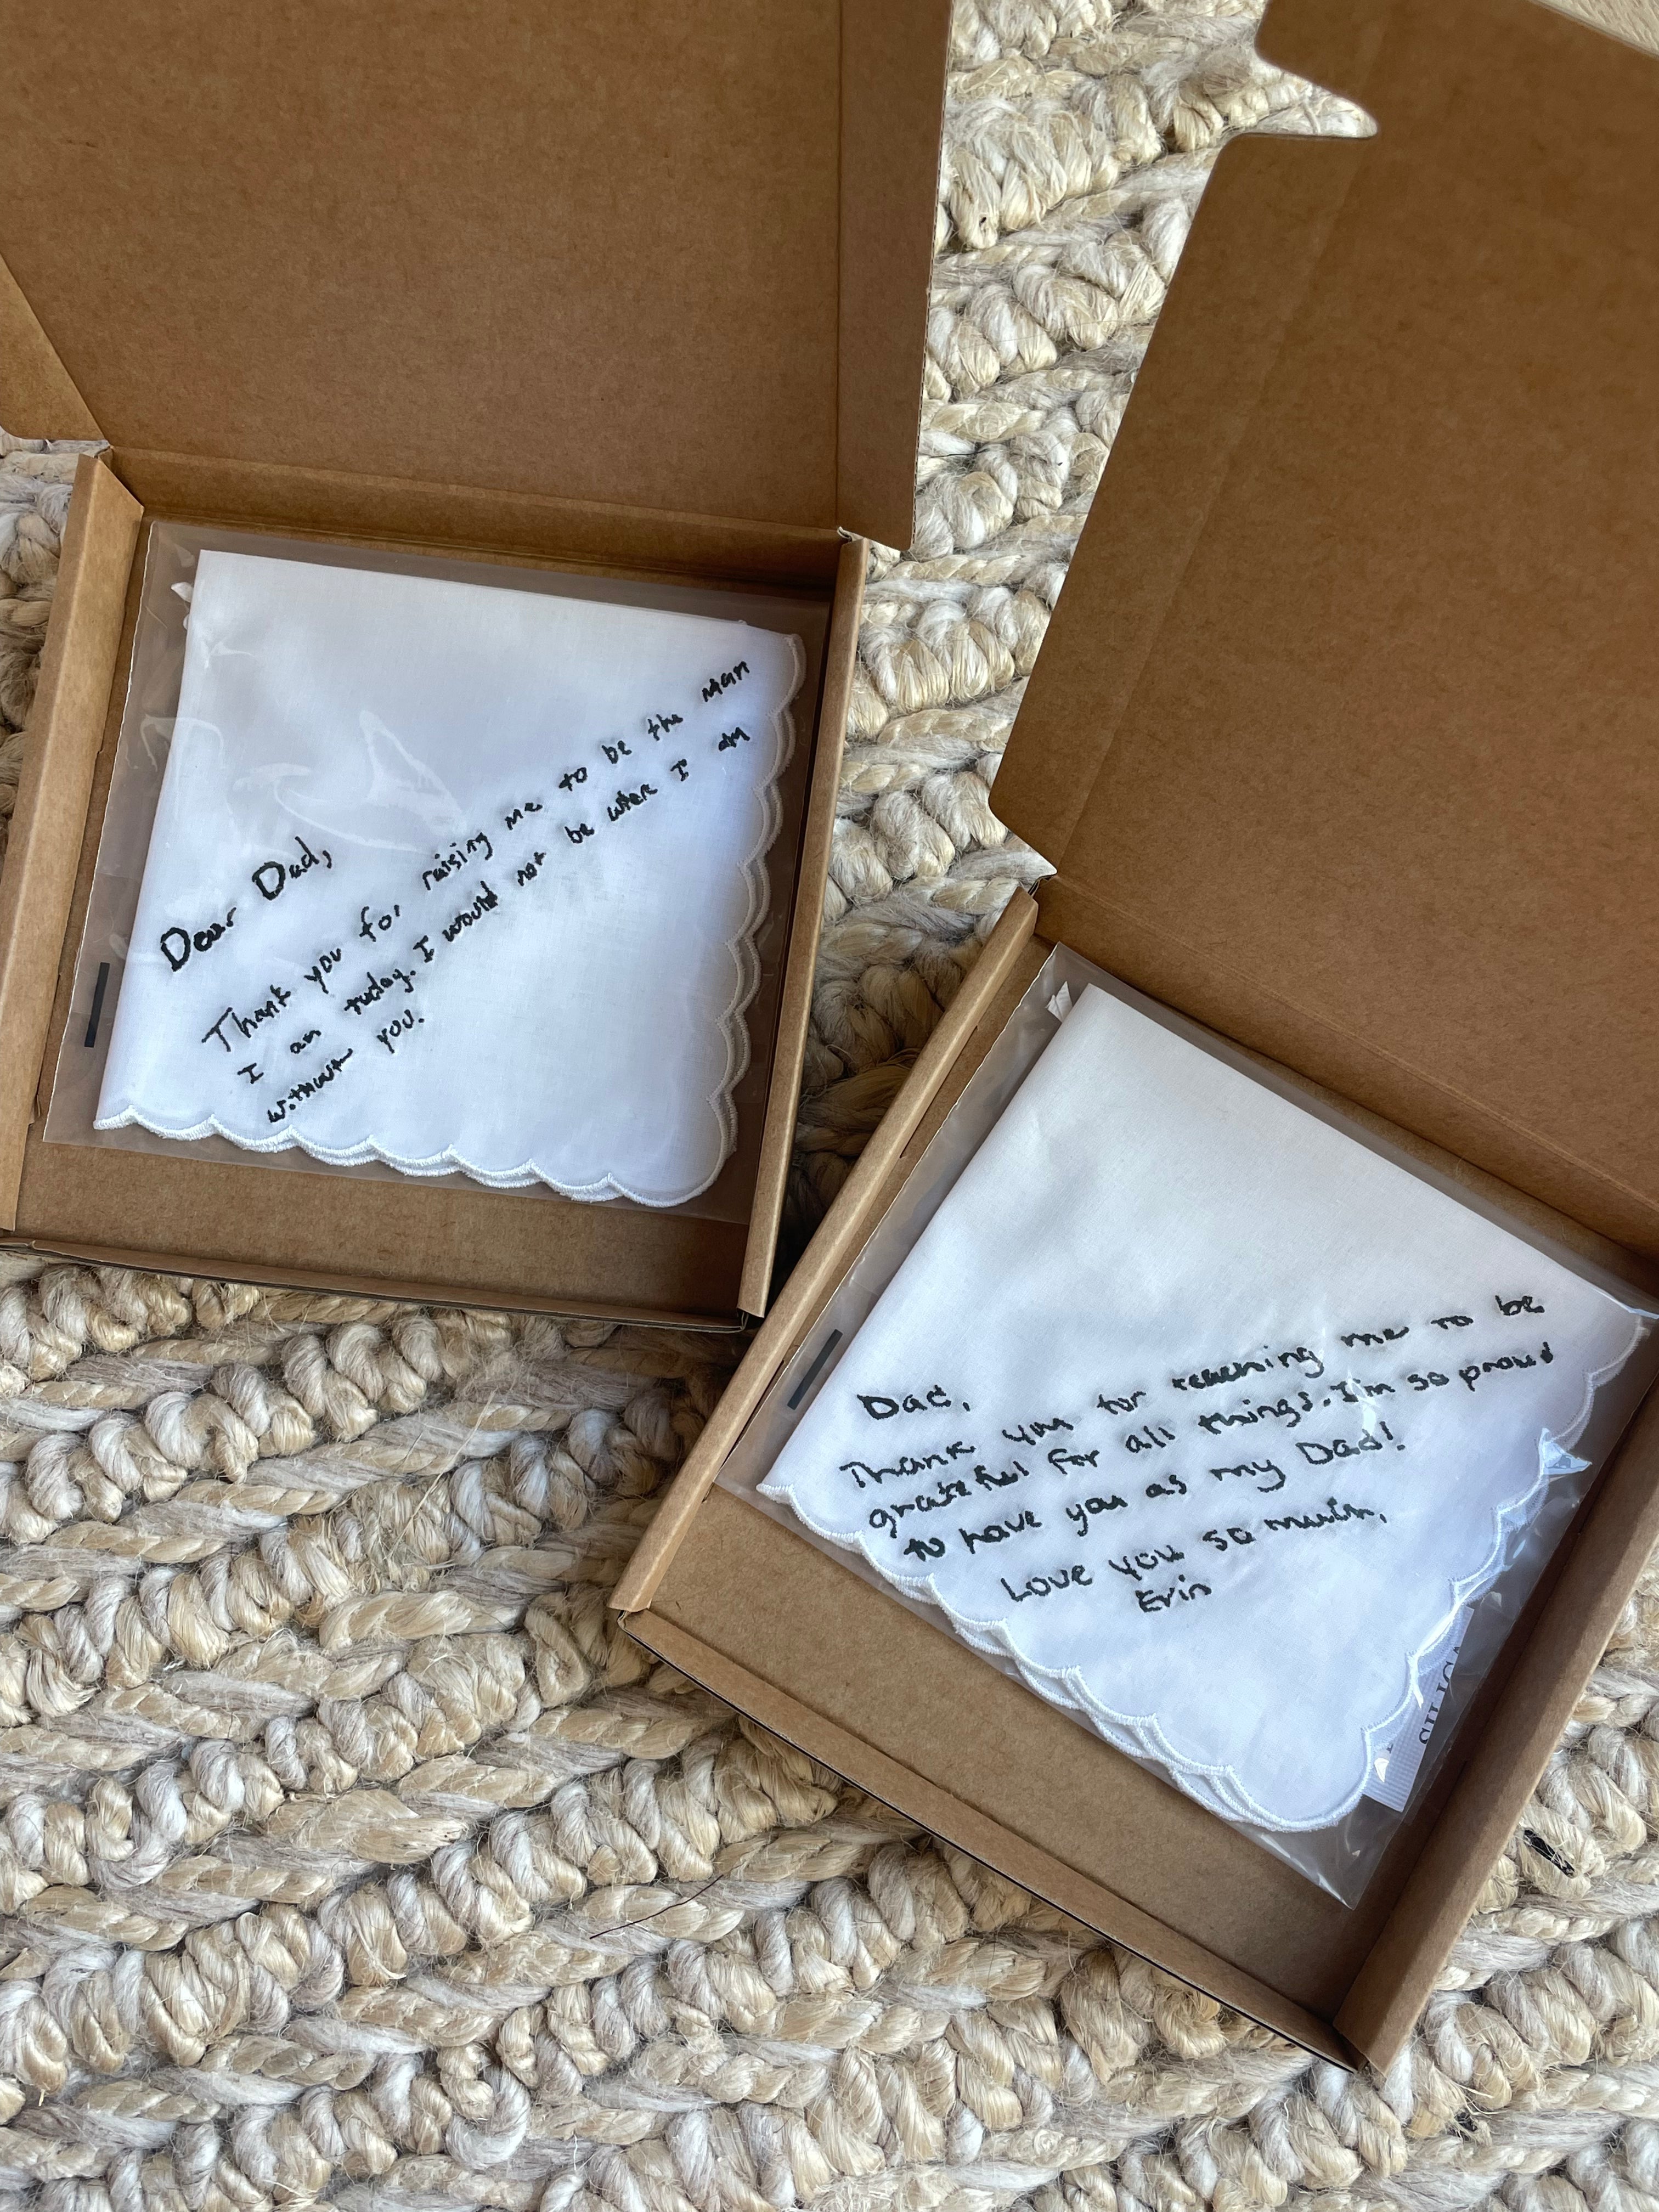 Dear Dad,
Thank you for raising me to be the man
I am today. I would not be where I am
without you.
Dad,
Thank you for teaching me to be
grateful for all things. I'm so proud
to have you as my Dad!
Love you so much,
Erin
SILICA